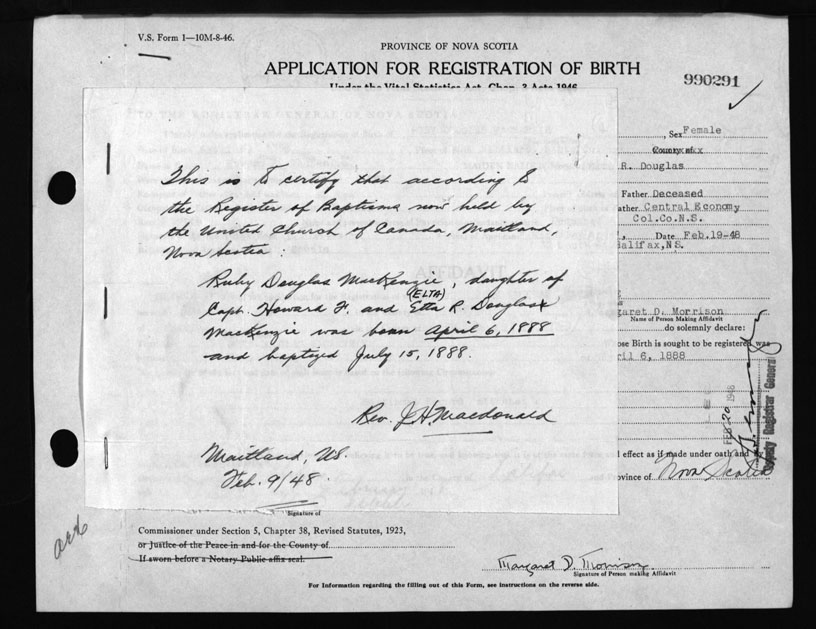 V.S. Form 1—10M-8-46.
PROVINCE OF NOVA SCOTIA
APPLICATION FOR REGISTRATION OF BIRTH
990291
Under the Vital Statistics Act, Chap. 3 Acts 1946
TO THE REGISTRAR GENERAL OF NOVA SCOTIA
, Sex Female
R. Douglas
Father Deceased
ather Central Economy
Col.Co.N.S.
Date Feb.19-48
Halifax,NS.
This is to certify that according to
the Register of Baptisms now held by
the United Church of Canada, Maitland,
Nova Scotia :
Ruby Douglas MacKenzie, daughter of
(ELTA)
Capt. Howard F. and Etta R. Douglas
MacKenzie was born April 6, 1888
and baptized July 15, 1888.
Rev. J.H. Macdonald
Maitland, NS.
Feb. 9/48.
AFFIDAVIT
garet D. Morrison
Name of Person Making Affidavit
do solemnly declare:
ose Birth is sought to be registered was
ril 6, 1888
FEB 20 1948
Deputy Registrar General
l effect as if made under oath and by
ovince of Nova Scotia
Signature of
Commissioner under Section 5, Chapter 38, Revised Statutes, 1923,
or Justice of the Peace in and for the County of
If sworn before a Notary Public affix seal.
Margaret D. Morrison
Signature of Person making Affidavit
For Information regarding the filling out of this Form, see instructions on the reverse side.